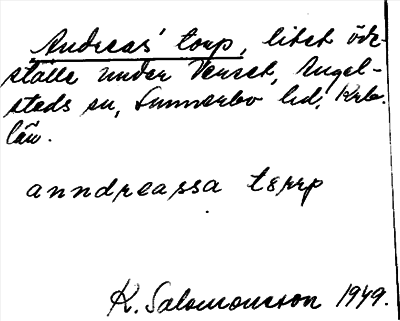 Andreas' torp, litet öde-
ställe under Venset, Angel-
stads sn, Sunnerbo hd, Krb.
län.
anndreassa tærrp
K. Salomonsson 1949.